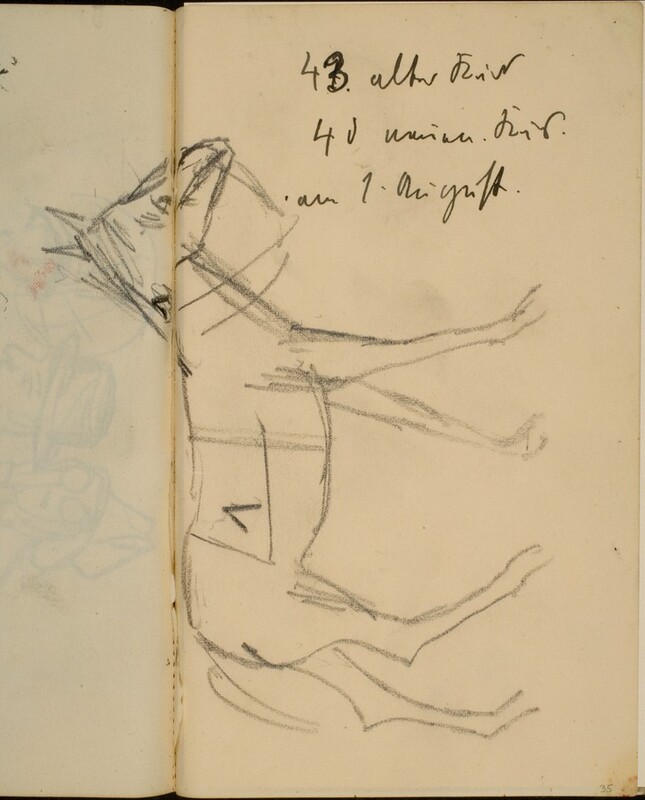 43. alter Kurs
40 neuen. Kurs.
am 1. August.
35